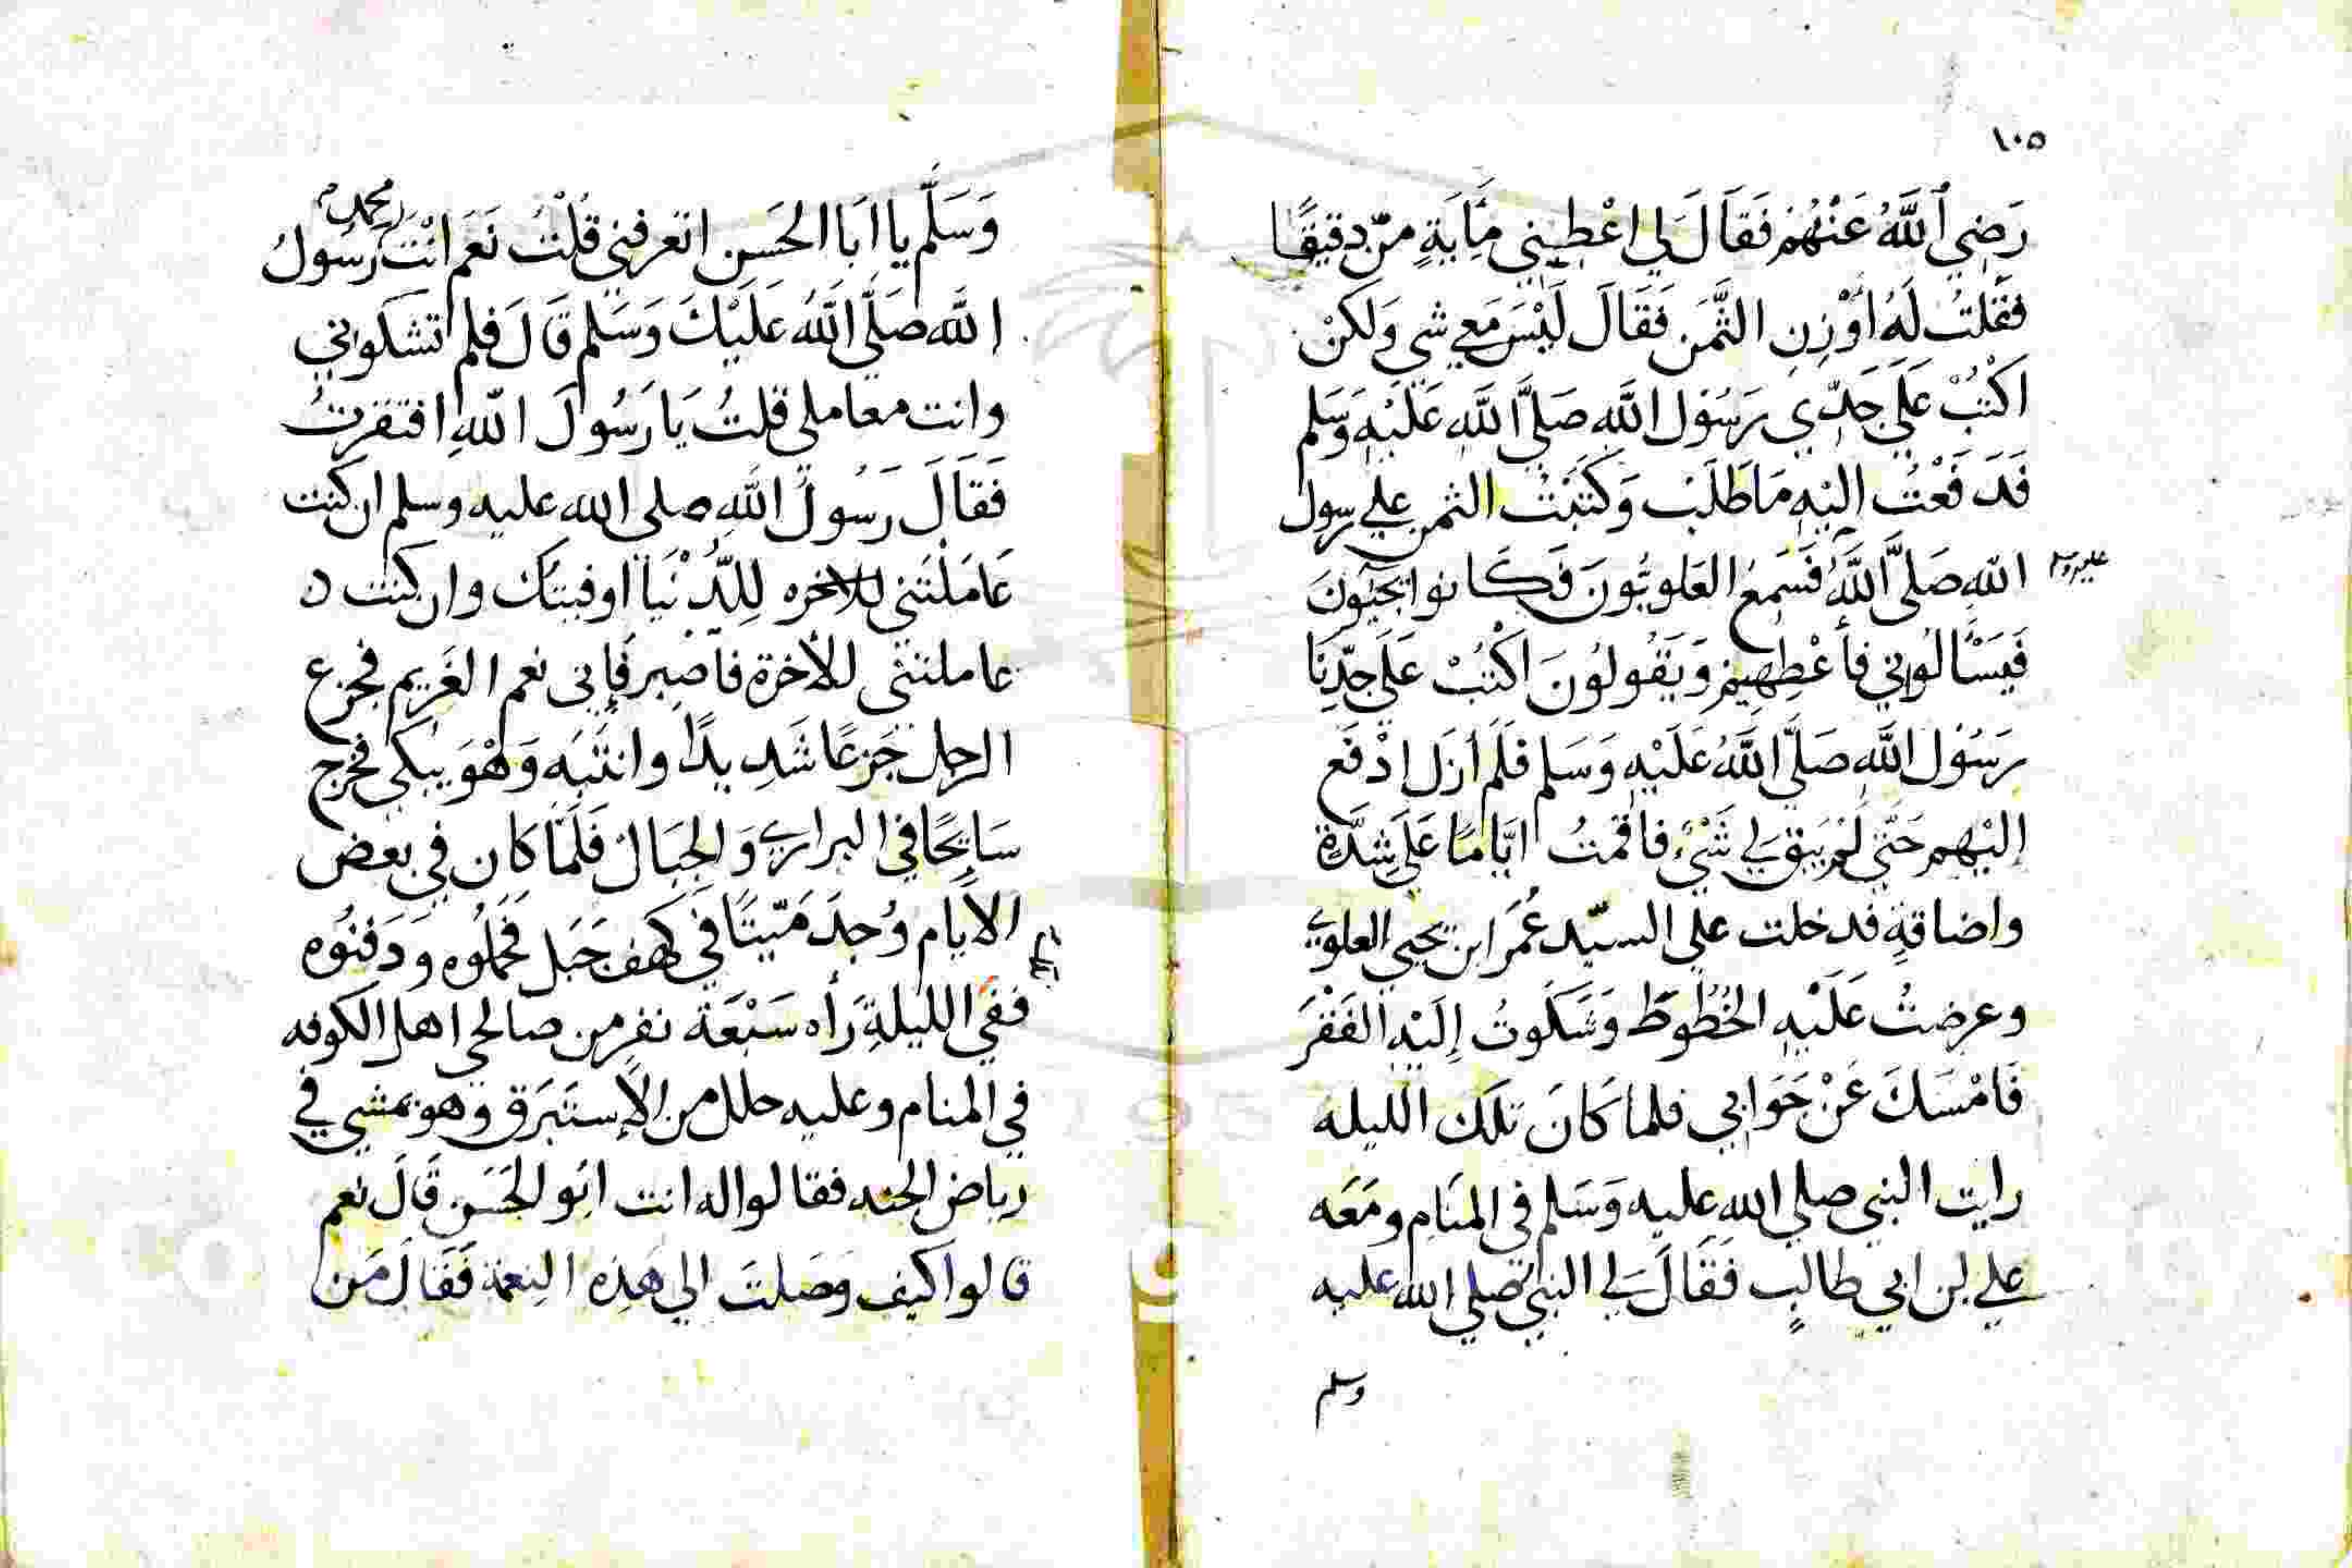 ١٠٥
رَضِي ٱللَّهُ عَنْهُمْ فَقَالَ لِي اعْطِيني مِايَةٍ مَنّ دقيقًا
فَقُلتُ لَهُ أوْزِنِ الثَّمَن فَقَالَ لَيْسَ مَعِي شي وَلكنْ
اكْتُبْ عَلَي جَدِّي رَسُول اللَّه صَلَّي اللَّه عَلَيْهِ وَسَلم
فَدَفَعْتُ إليْهِ مَا طَلَبْ وَكتَبْتُ الثمن علي رسول
الله صَلَّي اللَّهُ فَسَمِعُ العَلويُّونَ فَكَانوا يجيؤنَ
عليه وسلم
فَيَسْالُوني فأعْطِهِيمْ وَيَقُولُونَ اكْتُبْ عَلَي جدِّنَا
رَسُول اللَّه صَلَّي اللَّهُ عَلَيْهِ وَسَلم فَلَم أزَل ادْفَع
إليْهِم حَتَّي لَمْ يَبْقَ لِي شَيْءٌ فاقمتُ ايَّامًا عَلَي شِدَّةٍ
واضاقةٍ فدخلت علي السيّد عُمَر ابن يحيي العلوي
وعرضتُ عَلَيْهِ الخُطُوطَ وَشَكَوتُ إلَيْهِ الفَقْرَ
فَامْسَكَ عَنْ جَوَابي فلما كَانَ تلكَ الليله
رايت النبي صلي الله عليه وَسَلم في المنَام ومَعَه
علي ابن ابي طالبٍ فَقَالَ لِي النبي صلي الله عليه
وسلم
وَسَلَّم يا ابَا الحَسَن اتعرفني قُلْتُ نَعَم انْتَ محمد رَسُولُ
اللَّه صَلَّي اللَّهُ عَلَيْكَ وَسَلم قَالَ فلم تشكوني
وانت معاملي قلتُ يَا رَسُولَ اللّهِ افتقرتُ
فَقَالَ رَسُولُ اللَّهِ صلي الله عليه وسلم ان كنت
عَامَلْتَني للاخره لِلدُّنْيَا اوفيتكَ وان كنت
عاملتني للأخرة فاصبر فَإني نعم الغَريم فجزع
الرجل جَزعًا شَدِيدًا وانتَبَه وَهْوَ يبكي فخرج
سَايحًا في البراري وَالجِبَال فَلَمَّا كَان في بعض
الأيام وُجدَ مَيّتًا في كهف جَبَل فحَمَلُوه وَدَفنُوه
ففي الليلةِ رَأه سَبْعَة نفرٍ من صالحي اهل الكوفه
في المنام وعليه حلل من الإستَبرَق وهو يمشي في
رياض الجنه فقالوا له انت ابُو الحَسَن قَالَ نعم
قالوا كيف وَصَلتَ الي هَذِه النِعمَة فَقَالَ مَن